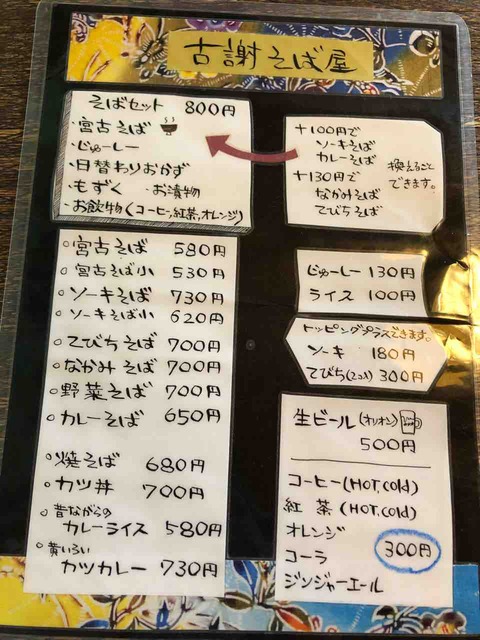 古謝そば屋
そばセット 800円
・宮古そば
・じゅーしー
・日替わりおかず
・もずく ・お漬物
・お飲物(コーヒー,紅茶,オレンジ)
+100円で
ソーキそば
カレーそば
+130円で
なかみそば
てびちそば
換えることできます。
○宮古そば 580円
○宮古そば小 530円
○ソーキそば 730円
○ソーキそば小 620円
○てびちそば 700円
○なかみそば 700円
○野菜そば 700円
○カレーそば 650円
○焼そば 680円
○カツ丼 700円
○昔ながらの
カレーライス 580円
○黄いろい
カツカレー 730円
じゅーしー 130円
ライス 100円
トッピングプラスできます。
ソーキ 180円
てびち(2コ入) 300円
生ビール(オリオン)
500円
コーヒー(HOT,cold)
紅茶(HOT,cold)
オレンジ
コーラ
300円
ジンジャーエール